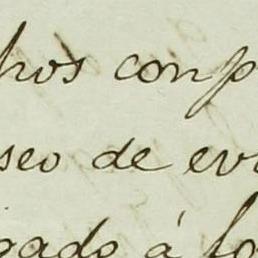 hos con p
seo de evi
gado á fo